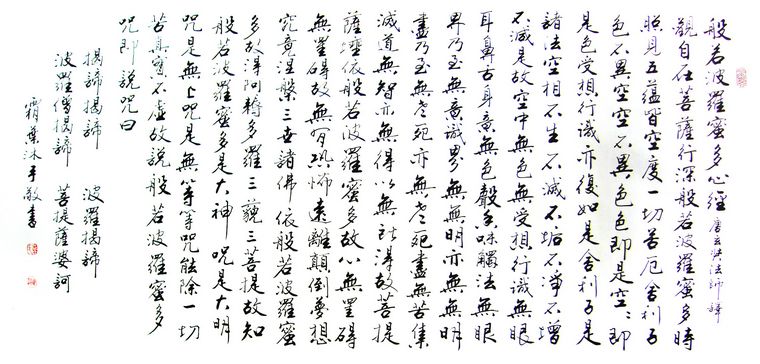 般若波羅蜜多心經 唐玄奘法師譯
觀自在菩薩行深般若波羅蜜多時
照見五蘊皆空度一切苦厄舍利子
色不異空空不異色色即是空空即
是色受想行識亦復如是舍利子是
諸法空相不生不滅不垢不淨不增
不減是故空中無色無受想行識無眼
耳鼻舌身意無色聲香味觸法無眼
界乃至無意識界無無明亦無無明
盡乃至無老死亦無老死盡無苦集
滅道無智亦無得以無所得故菩提
薩埵依般若波羅蜜多故心無罣礙
無罣礙故無有恐怖遠離顛倒夢想
究竟涅槃三世諸佛依般若波羅蜜
多故得阿耨多羅三藐三菩提故知
般若波羅蜜多是大神咒是大明
咒是無上咒是無等等咒能除一切
苦真實不虛故說般若波羅蜜多
咒即說咒曰
揭諦揭諦 波羅揭諦
波羅僧揭諦 菩提薩婆訶
霜葉沐手敬書